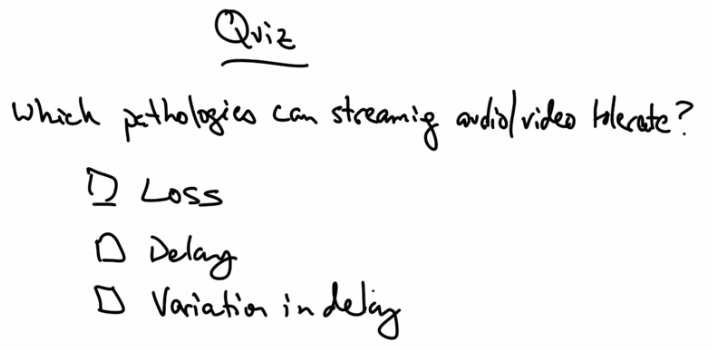 Quiz
Which pathologies can streamig audio/video tolerate?
Loss
Delay
Variation in delay